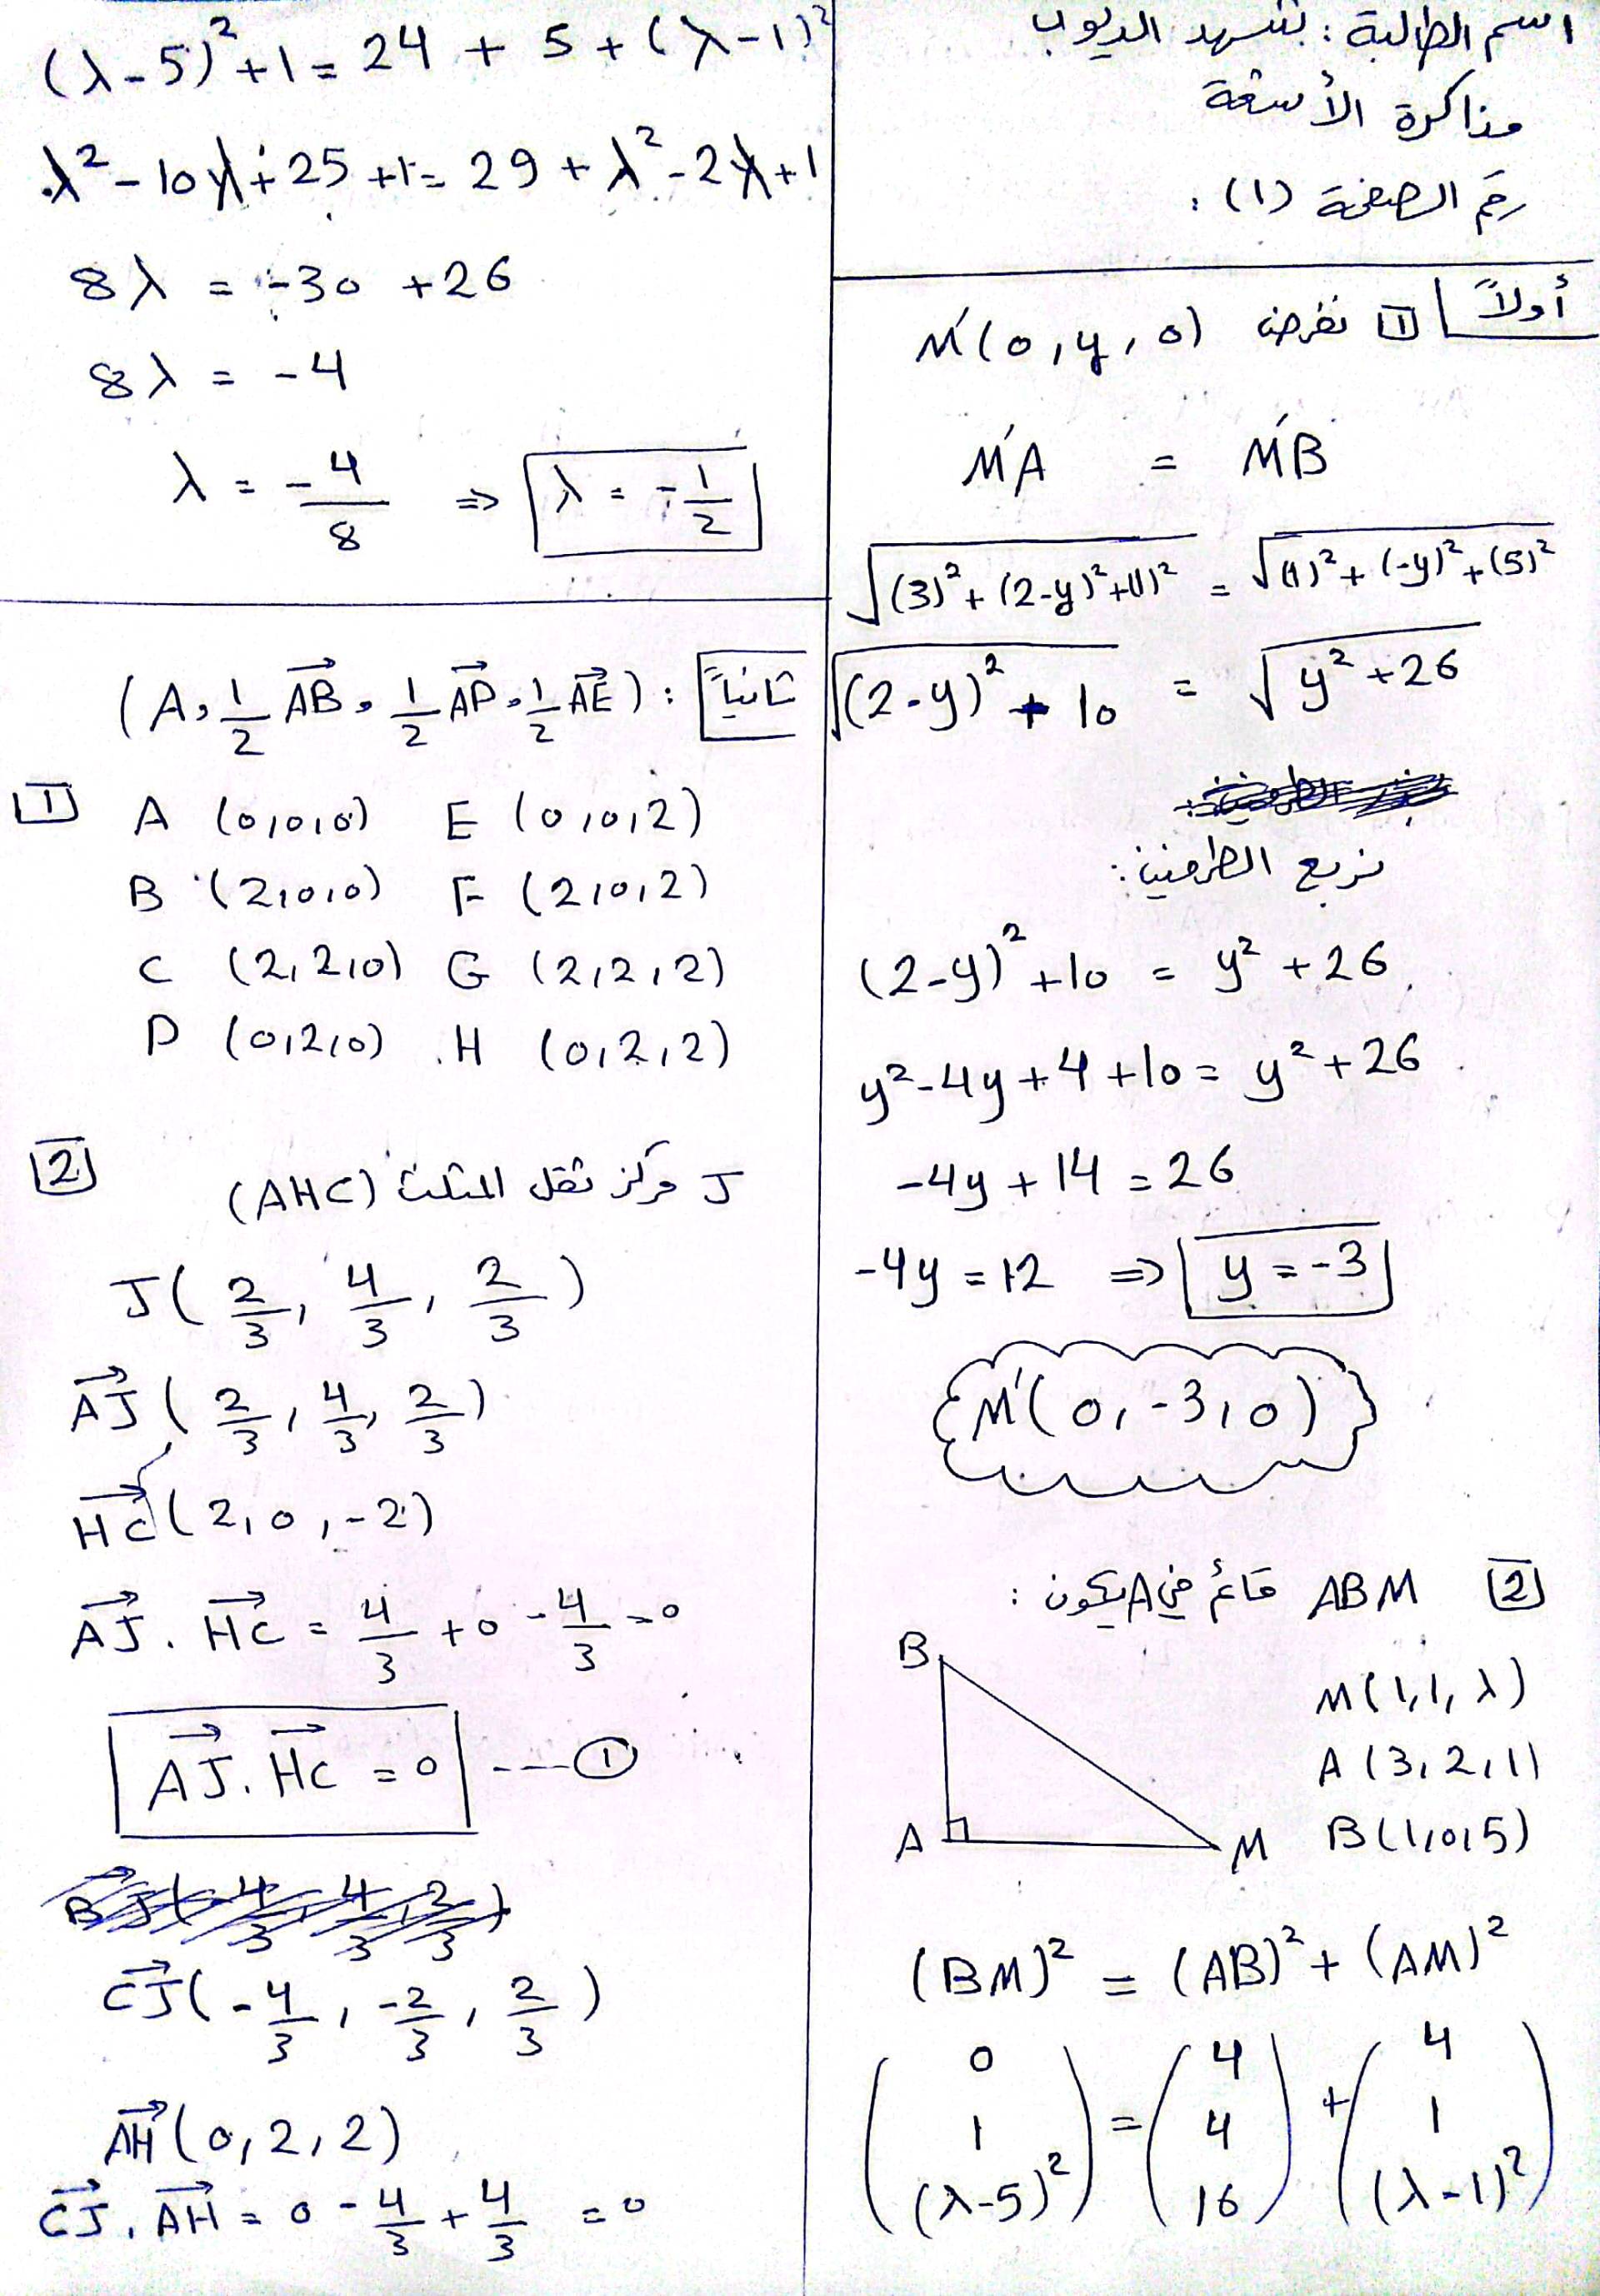 اسم الطالبة : شهد الديوب
مذاكرة الأشعة
رقم الصفحة (1) :
أولاً 1 نفرض M'(0, y, 0)
M'A = M'B
√((3)² + (2-y)² + (1)²) = √((1)² + (-y)² + (5)²)
√((2-y)² + 10) = √(y² + 26)
نربع الطرفين :
(2-y)² + 10 = y² + 26
y² - 4y + 4 + 10 = y² + 26
-4y + 14 = 26
-4y = 12 ⇒ y = -3
M'(0, -3, 0)
2 ABM قائم في A يكون :
B
M(1, 1, λ)
A(3, 2, 1)
A M B(1, 0, 5)
(BM)² = (AB)² + (AM)²
0 4 4
1 = 4 + 1
(λ-5)² 16 (λ-1)²
(λ-5)² + 1 = 24 + 5 + (λ-1)²
λ² - 10λ + 25 + 1 = 29 + λ² - 2λ + 1
8λ = -30 + 26
8λ = -4
λ = -4/8 ⇒ λ = -1/2
ثانياً : (A, 1/2 AB, 1/2 AD, 1/2 AE)
1 A (0,0,0) E (0,0,2)
B (2,0,0) F (2,0,2)
C (2,2,0) G (2,2,2)
D (0,2,0) H (0,2,2)
2 J مركز ثقل المثلث (AHC)
J(2/3, 4/3, 2/3)
AJ(2/3, 4/3, 2/3)
HC(2, 0, -2)
AJ . HC = 4/3 + 0 - 4/3 = 0
AJ . HC = 0 --- 1
CJ(-4/3, -2/3, 2/3)
AH(0, 2, 2)
CJ . AH = 0 - 4/3 + 4/3 = 0